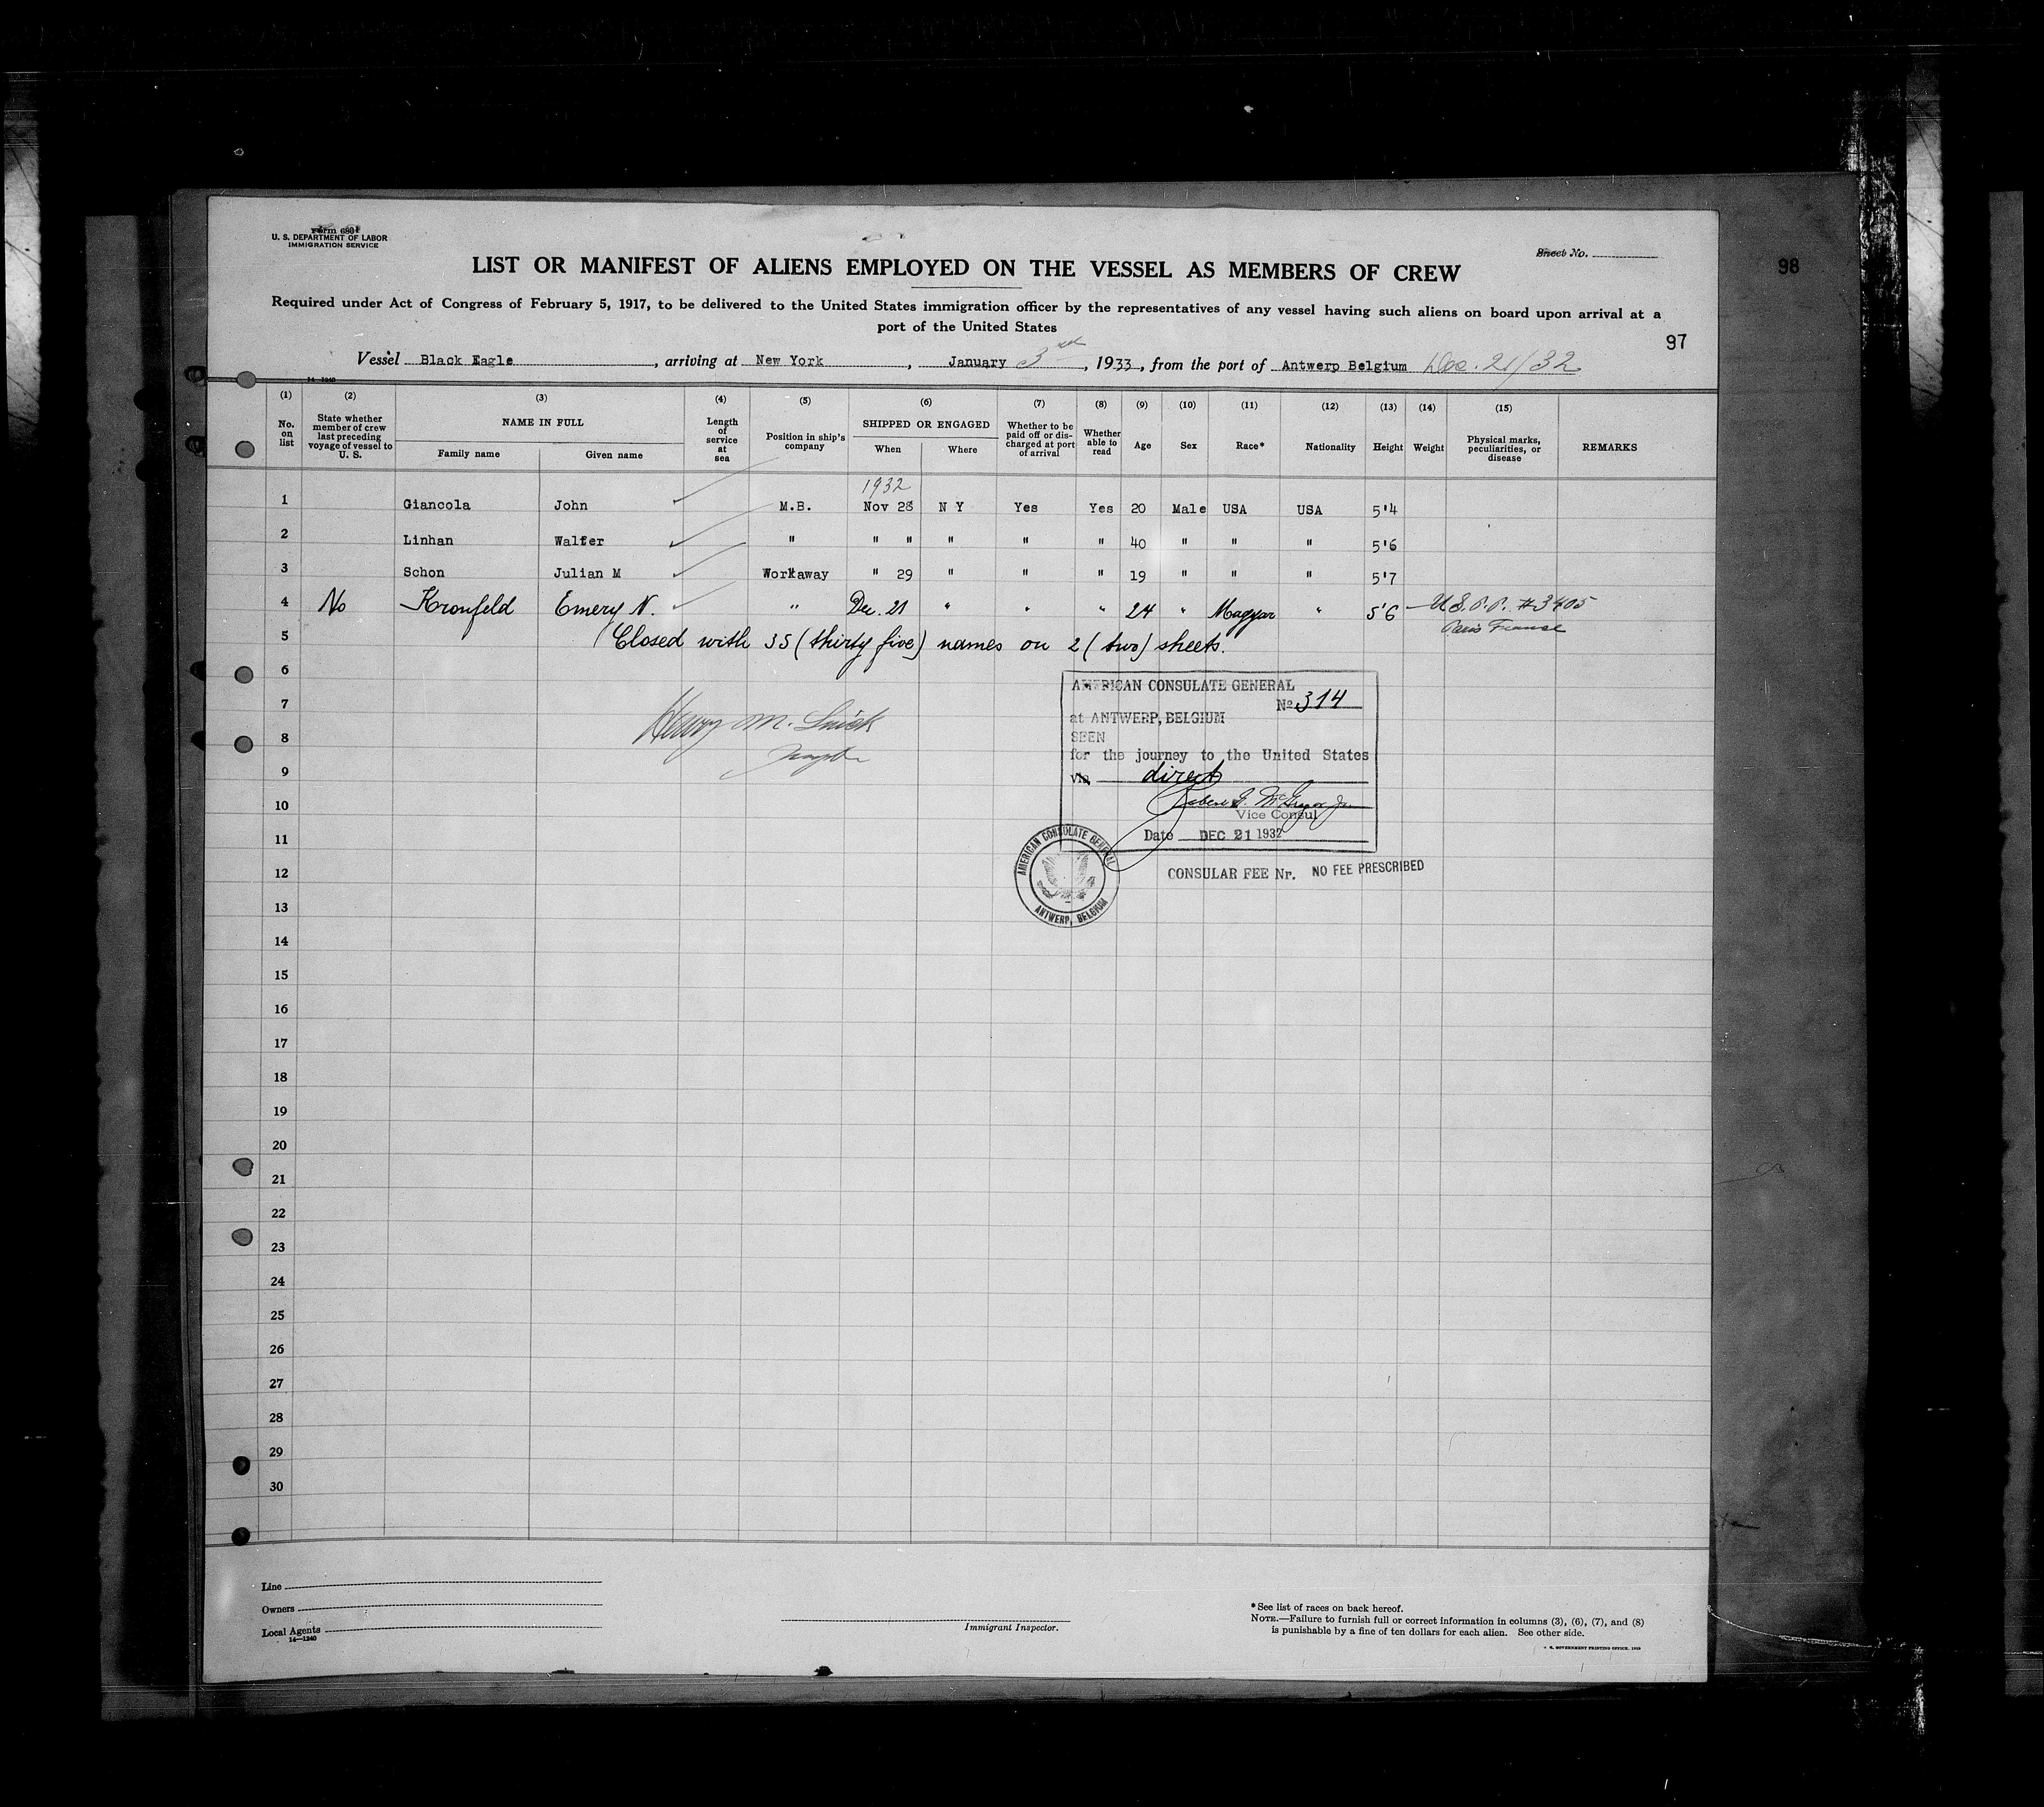 Form 680
U. S. DEPARTMENT OF LABOR
IMMIGRATION SERVICE
Sheet No.
98
LIST OR MANIFEST OF ALIENS EMPLOYED ON THE VESSEL AS MEMBERS OF CREW
Required under Act of Congress of February 5, 1917, to be delivered to the United States immigration officer by the representatives of any vessel having such aliens on board upon arrival at a
port of the United States
97
Vessel Black Eagle, arriving at New York, January 3rd, 1933, from the port of Antwerp Belgium Dec. 21/32
14—1240
(1) (2) (3) (4) (5) (6) (7) (8) (9) (10) (11) (12) (13) (14) (15)
No. on list
State whether member of crew last preceding voyage of vessel to U. S.
NAME IN FULL
Family name Given name
Length of service at sea
Position in ship's company
SHIPPED OR ENGAGED
When Where
Whether to be paid off or discharged at port of arrival
Whether able to read
Age Sex Race* Nationality Height Weight
Physical marks, peculiarities, or disease
REMARKS
1932
1 Giancola John M.B. Nov 28 N Y Yes Yes 20 Male USA USA 5'4
2 Linhan Walter " " " " " " 40 " " " 5'6
3 Schon Julian M Workaway " 29 " " " 19 " " " 5'7
4 No Kronfeld Emery N. " Dec. 21 " " " 24 " Magyar " 5'6 U.S.P.P. #3405
Paris France
5 (Closed with 35 (thirty five) names on 2 (two) sheets.
6
7
8
9
10
11
12
13
14
15
16
17
18
19
20
21
22
23
24
25
26
27
28
29
30
Henry M.
AMERICAN CONSULATE GENERAL
No 314
at ANTWERP, BELGIUM
SEEN
for the journey to the United States
via direct
Vice Consul
Date DEC 21 1932
AMERICAN CONSULATE GENERAL
ANTWERP, BELGIUM
CONSULAR FEE Nr. NO FEE PRESCRIBED
Line
Owners
Local Agents
14—1240
Immigrant Inspector.
*See list of races on back hereof.
NOTE.—Failure to furnish full or correct information in columns (3), (6), (7), and (8)
is punishable by a fine of ten dollars for each alien. See other side.
GOVERNMENT PRINTING OFFICE